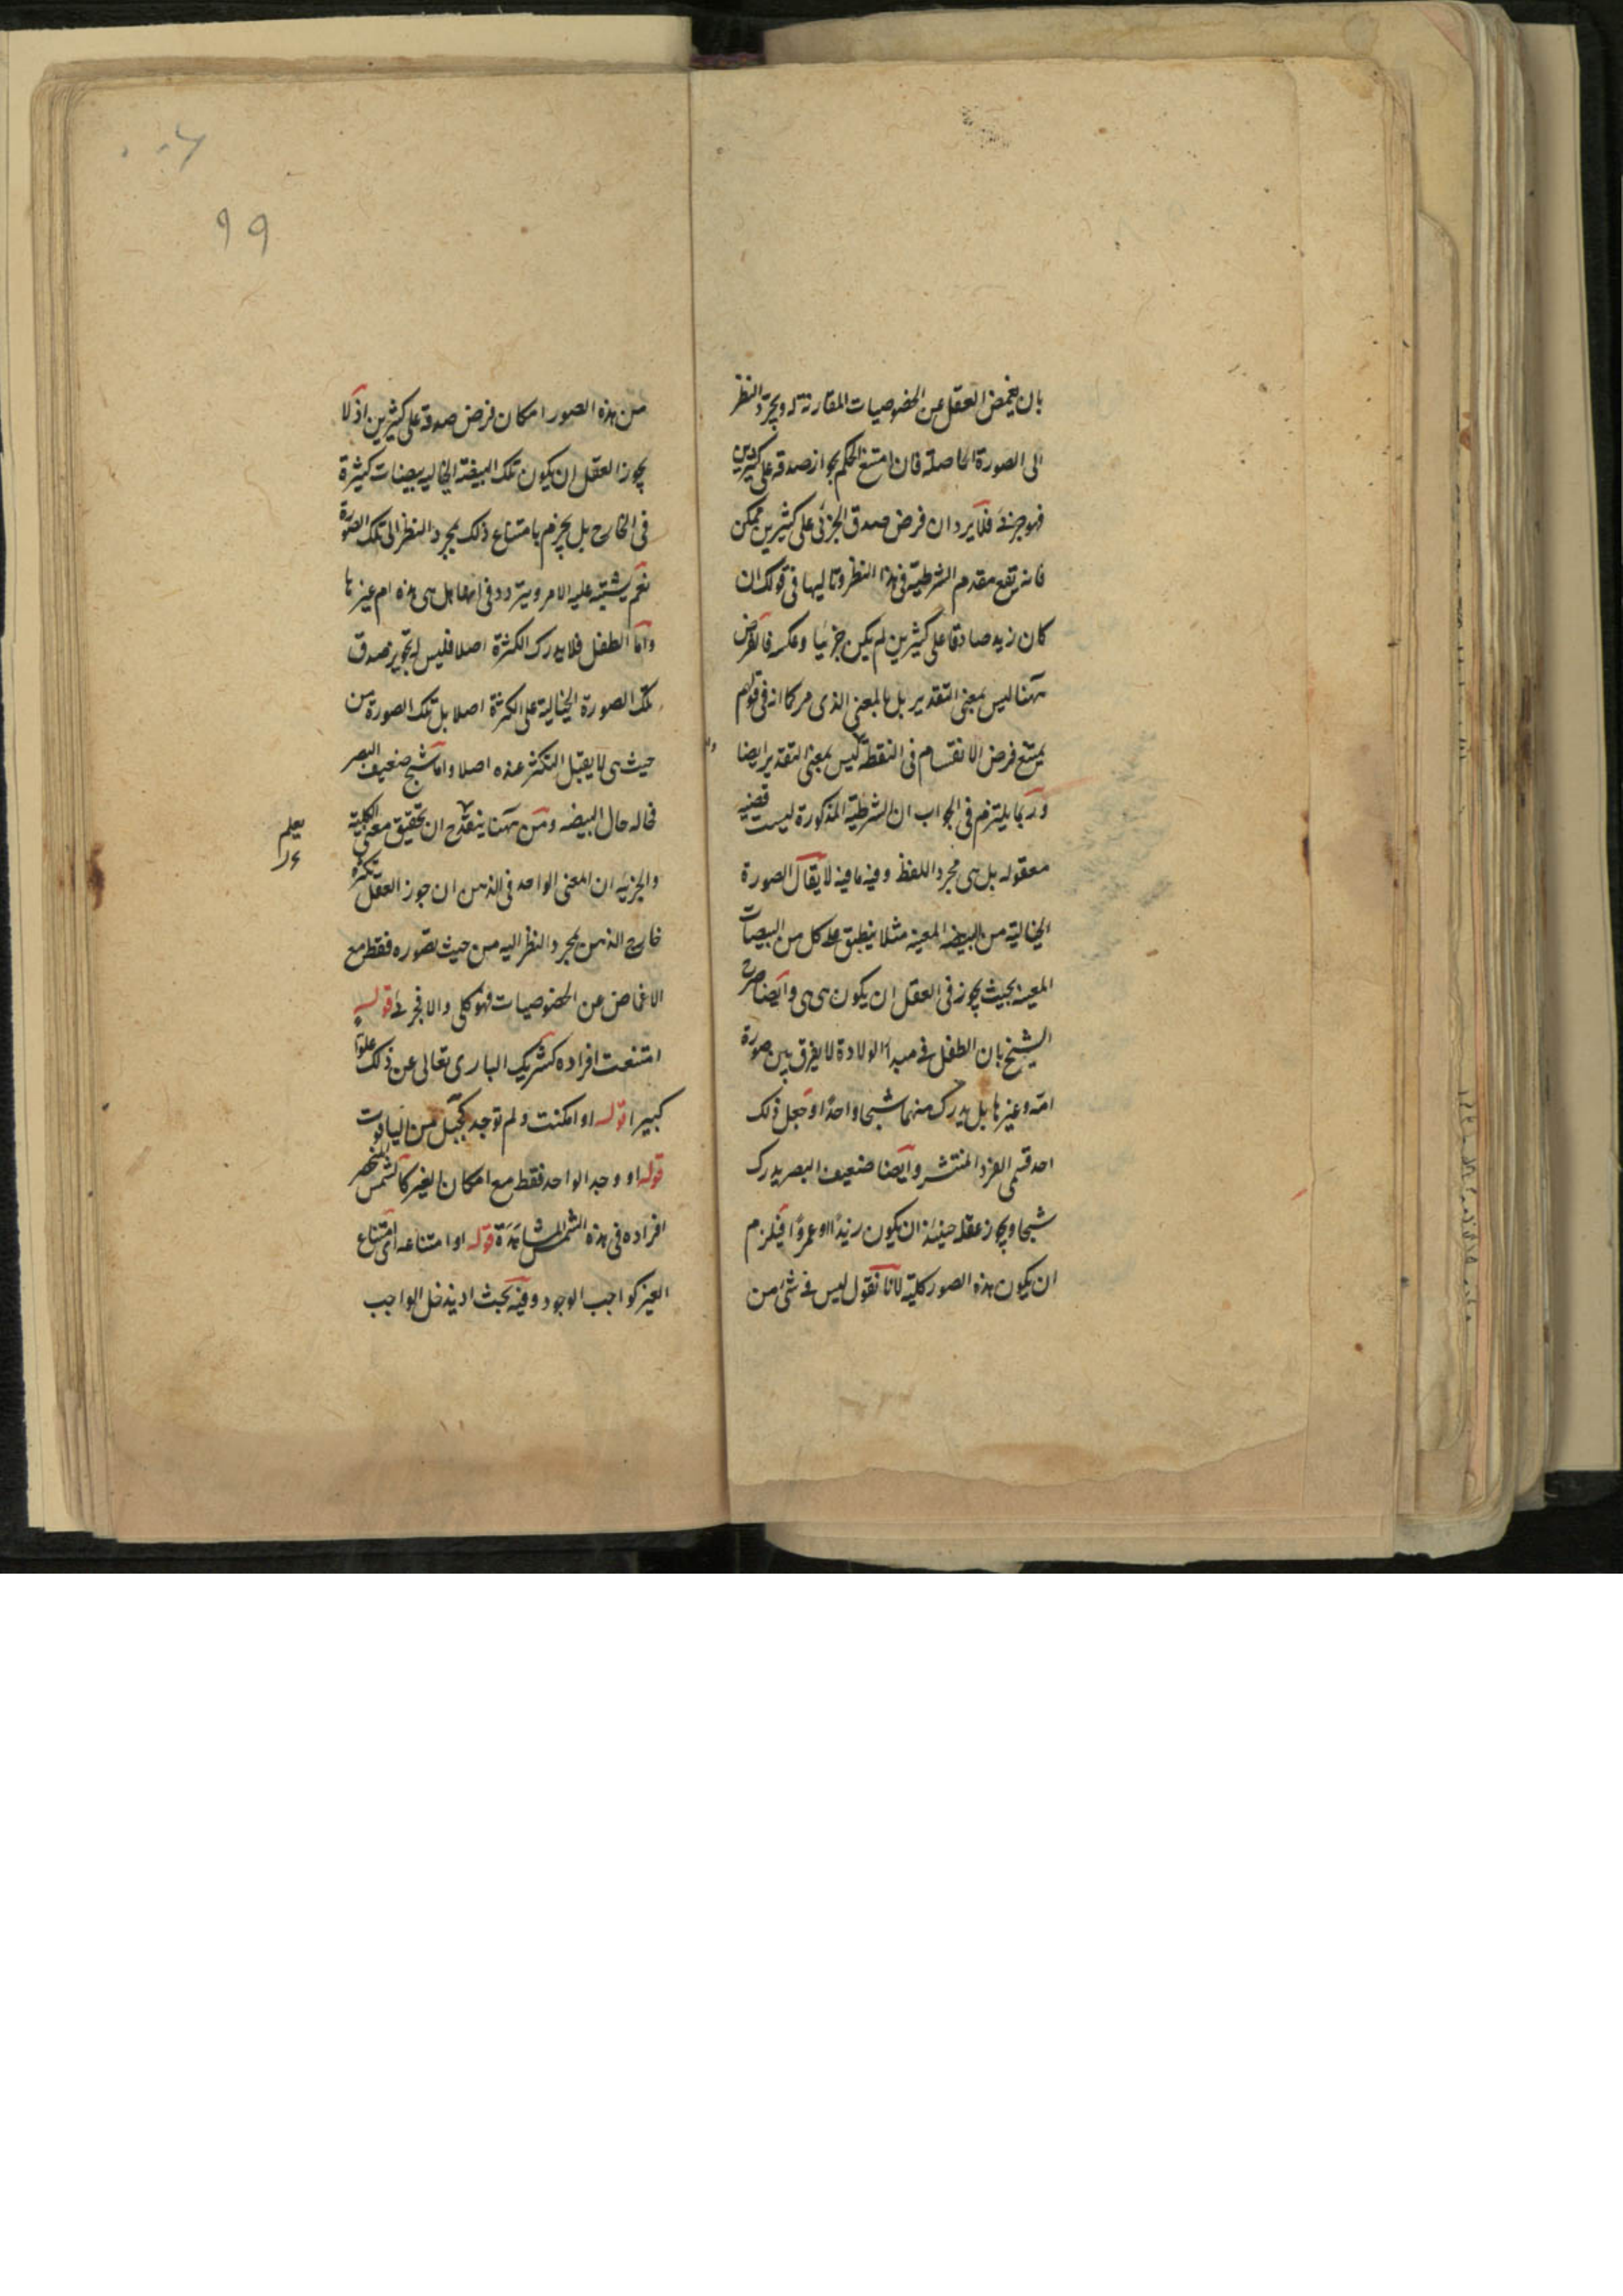 بان يغمض العقل عن الخصوصيات المقارنة له ويجرد النظر
الى الصورة الحاصلة فان امتنع الحكم بجواز صدقه على كثيرين
فهو جزئى فلا يرد ان فرض صدق الجزئى على كثيرين ممكن
فانه يقع مقدم الشرطية فى هذا النظر وتاليها فى قولك ان
كان زيد صادقا على كثيرين لم يكن جزئيا وعكسه فالفرض
ههنا ليس بمعنى التقدير بل بالمعنى الذى مر كما انه فى قولهم
يمتنع فرض الانقسام فى النقطة ليس بمعنى التقدير ايضا
وربما يلتزم فى الجواب ان الشرطية المذكورة ليست قضية
معقوله بل هى مجرد اللفظ وفيه ما فيه لا يقال الصورة
الخيالية من البيضه المعينه مثلا ينطبق على كل من البيضات
المعينه بحيث يجوز فى العقل ان يكون هى هى وايضا صرح
الشيخ بان الطفل فى مبدأ الولادة لا يفرق بين صورة
امه وغيرها بل يدرك منهما شبحا واحدا وجعل ذلك
احد قسمى الفرد المنتشر وايضا ضعيف البصر يدرك
شبحا ويجوز عقله حينئذ ان يكون زيدا او عمروا فيلزم
ان يكون هذه الصور كلية لانا نقول ليس فى شئ من
٩٩
من هذه الصور امكان فرض صدقه على كثيرين اذ لا
يجوز العقل ان يكون تلك البيضة الخياليه بيضات كثيرة
فى الخارج بل يجزم بامتناع ذلك بمجرد النظر الى تلك الصورة
نعم يشتبه عليه الامر ويتردد فى انها هل هى هذه ام غيرها
واما الطفل فلا يدرك الكثرة اصلا فليس له تجويز صدق
تلك الصورة الخيالية على الكثرة اصلا بل تلك الصورة من
حيث هى لا يقبل التكثر عنده اصلا واما شبح ضعيف البصر
فحاله حال البيضه ومن ههنا ينقدح ان تحقيق معنى الكلية
يعلم
والجزئيه ان المعنى الواحد فى الذهن ان جوز العقل تكثره
خارج الذهن بمجرد النظر اليه من حيث تصوره فقط مع
الاغماض عن الخصوصيات فهو كلى والا فجزئى قوله
امتنعت افراده كشريك البارى تعالى عن ذلك علوا
كبيرا قوله او امكنت ولم توجد كجبل من الياقوت
قوله او وجد الواحد فقط مع امكان الغير كالشمس المنحصر
افراده فى هذه الشمس المشاهدة قوله او امتناعه اى امتناع
الغير كواجب الوجود وفيه بحث اذ يدخل الواجب